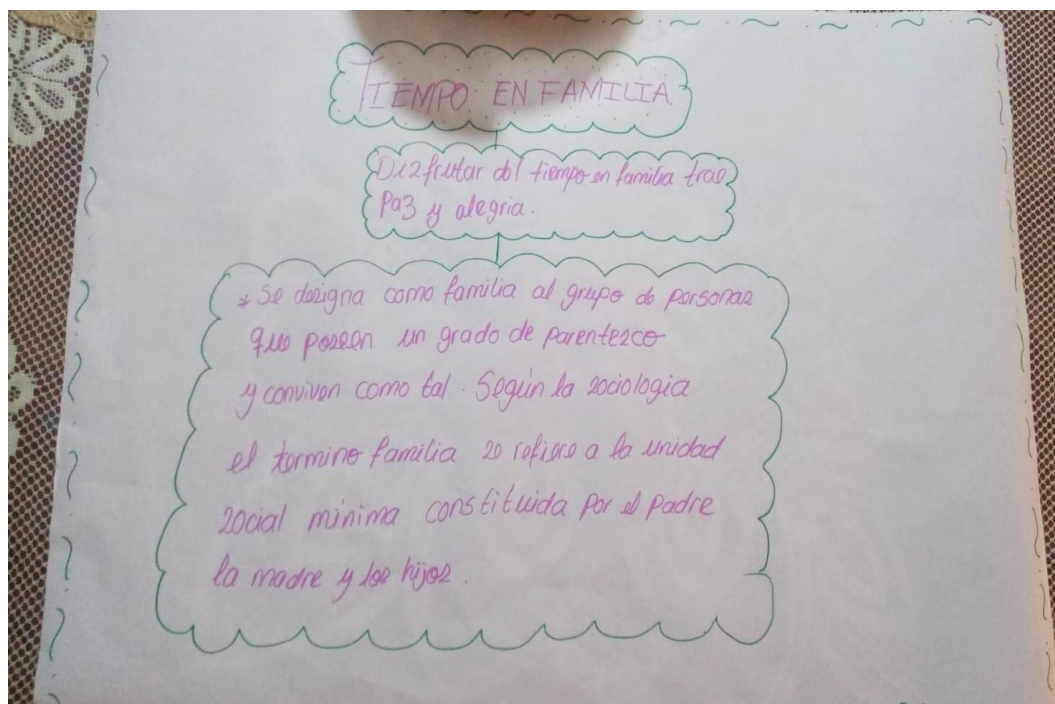 TIEMPO EN FAMILIA
Disfrutar del tiempo en familia trae
Paz y alegria.
* Se designa como familia al grupo de personas
que poseen un grado de parentesco
y conviven como tal. Según la sociologia
el termino familia se refiere a la unidad
social minima constituida por el padre
la madre y los hijos.